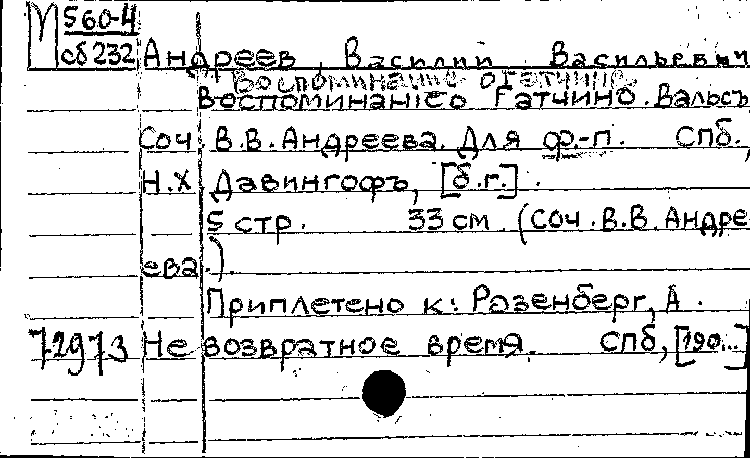 М 560-4
сб 232
Андреев, Василий Васильевич
Воспоминание о Гатчине.
Воспоминаніе о Гатчино. Вальсъ
Соч. В.В. Андреева. Для ф.-п. СПб.,
Н.Х. Давингофъ, [б.г.].
5 стр. 33 см. (Соч. В.В. Андре
ева.).
Приплетено к: Розенберг, А.
72973 Не возвратное время. СПб, [190...]